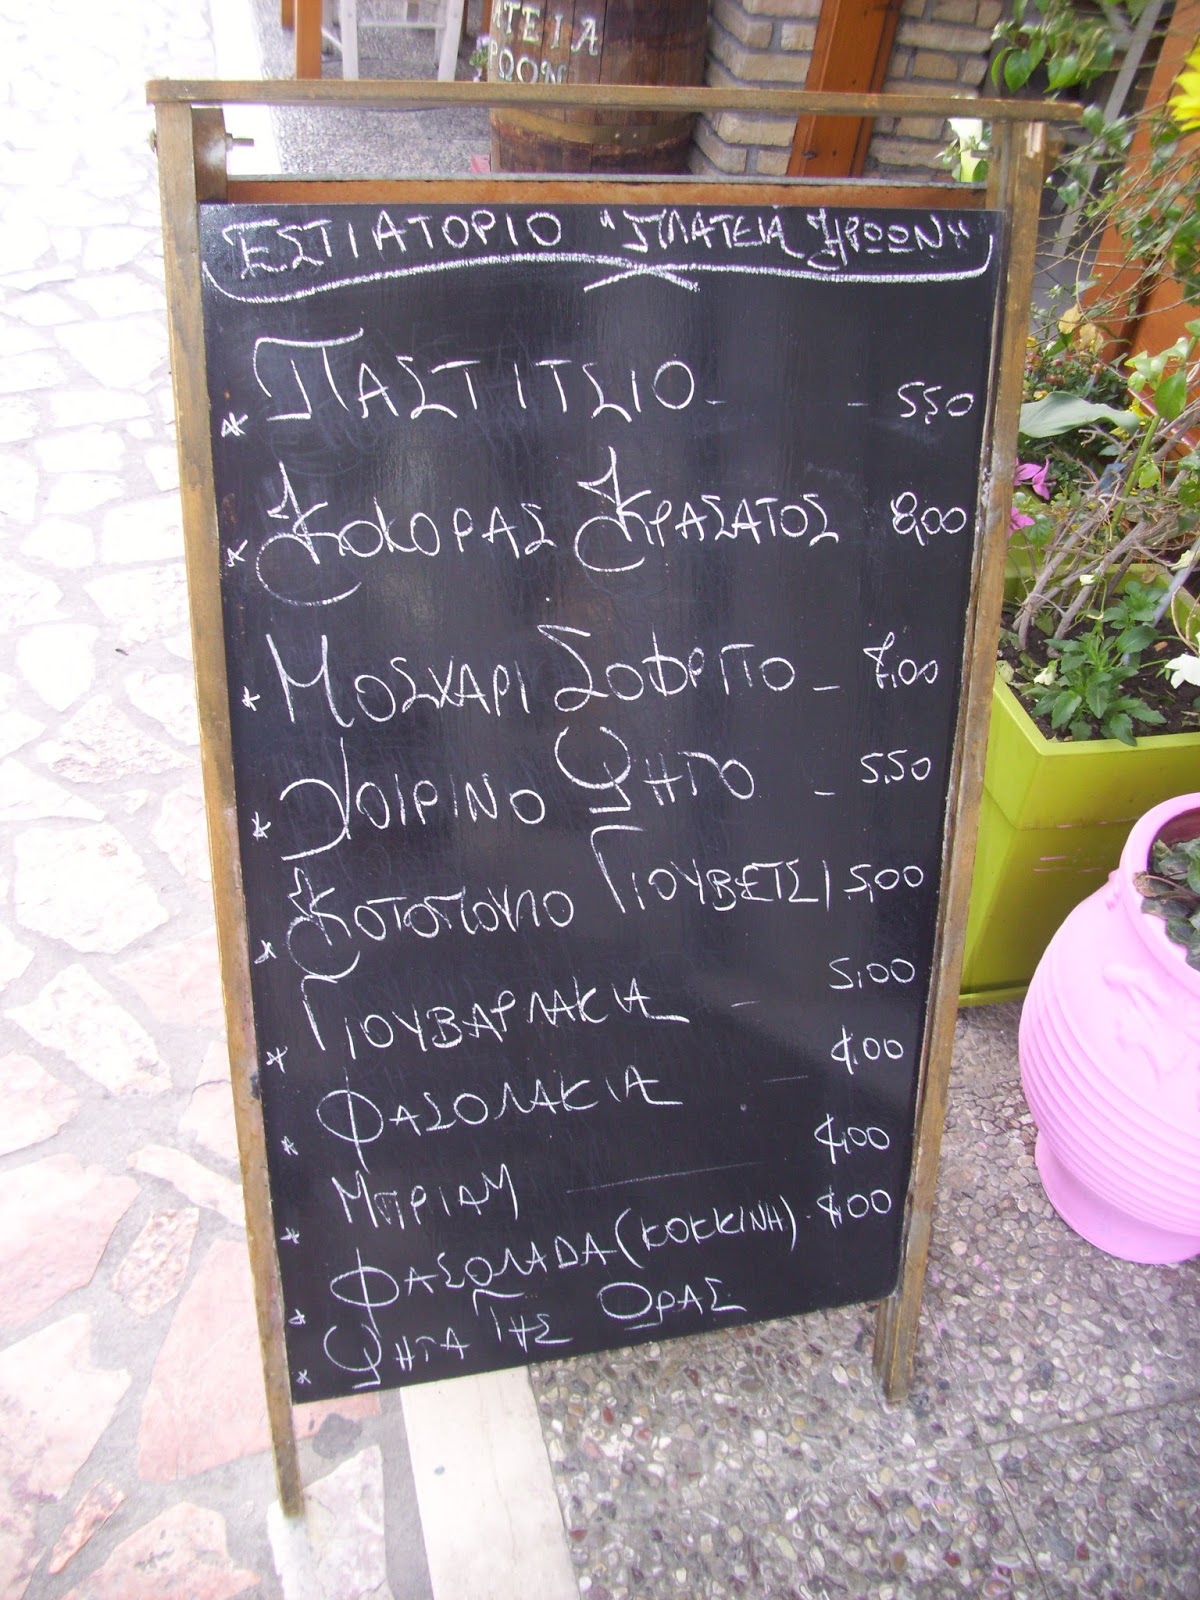 ΑΤΕΙΑ
ΡΩΩΝ
ΕΣΤΙΑΤΟΡΙΟ "ΠΛΑΤΕΙΑ ΗΡΩΩΝ"
* ΠΑΣΤΙΤΣΙΟ - - 5,50
* ΚΟΚΟΡΑΣ ΚΡΑΣΑΤΟΣ 8,00
* ΜΟΣΧΑΡΙ ΣΟΦΡΙΤΟ - 7,00
* ΧΟΙΡΙΝΟ ΨΗΤΟ - 5,50
* ΚΟΤΟΠΟΥΛΟ ΓΙΟΥΒΕΤΣΙ 5,00
* ΓΙΟΥΒΑΡΛΑΚΙΑ - 5,00
* ΦΑΣΟΛΑΚΙΑ - 4,00
* ΜΠΡΙΑΜ - 4,00
* ΦΑΣΟΛΑΔΑ (ΚΟΚΚΙΝΗ) - 4,00
* ΨΗΤΑ ΤΗΣ ΩΡΑΣ